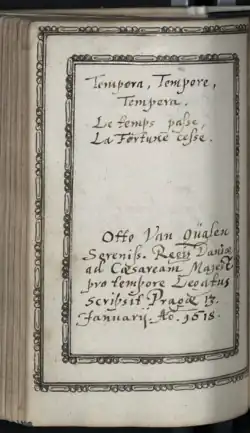 Tempora, Tempore,
Tempera.
Le temps passe,
La Fortune cesse.
Otto Van Qualen
Sereniss. Regij Daniæ
ad Cæsaream Majest
pro tempore Legatus
scripsit Pragæ 13.
Januarij. Ao. 1618.